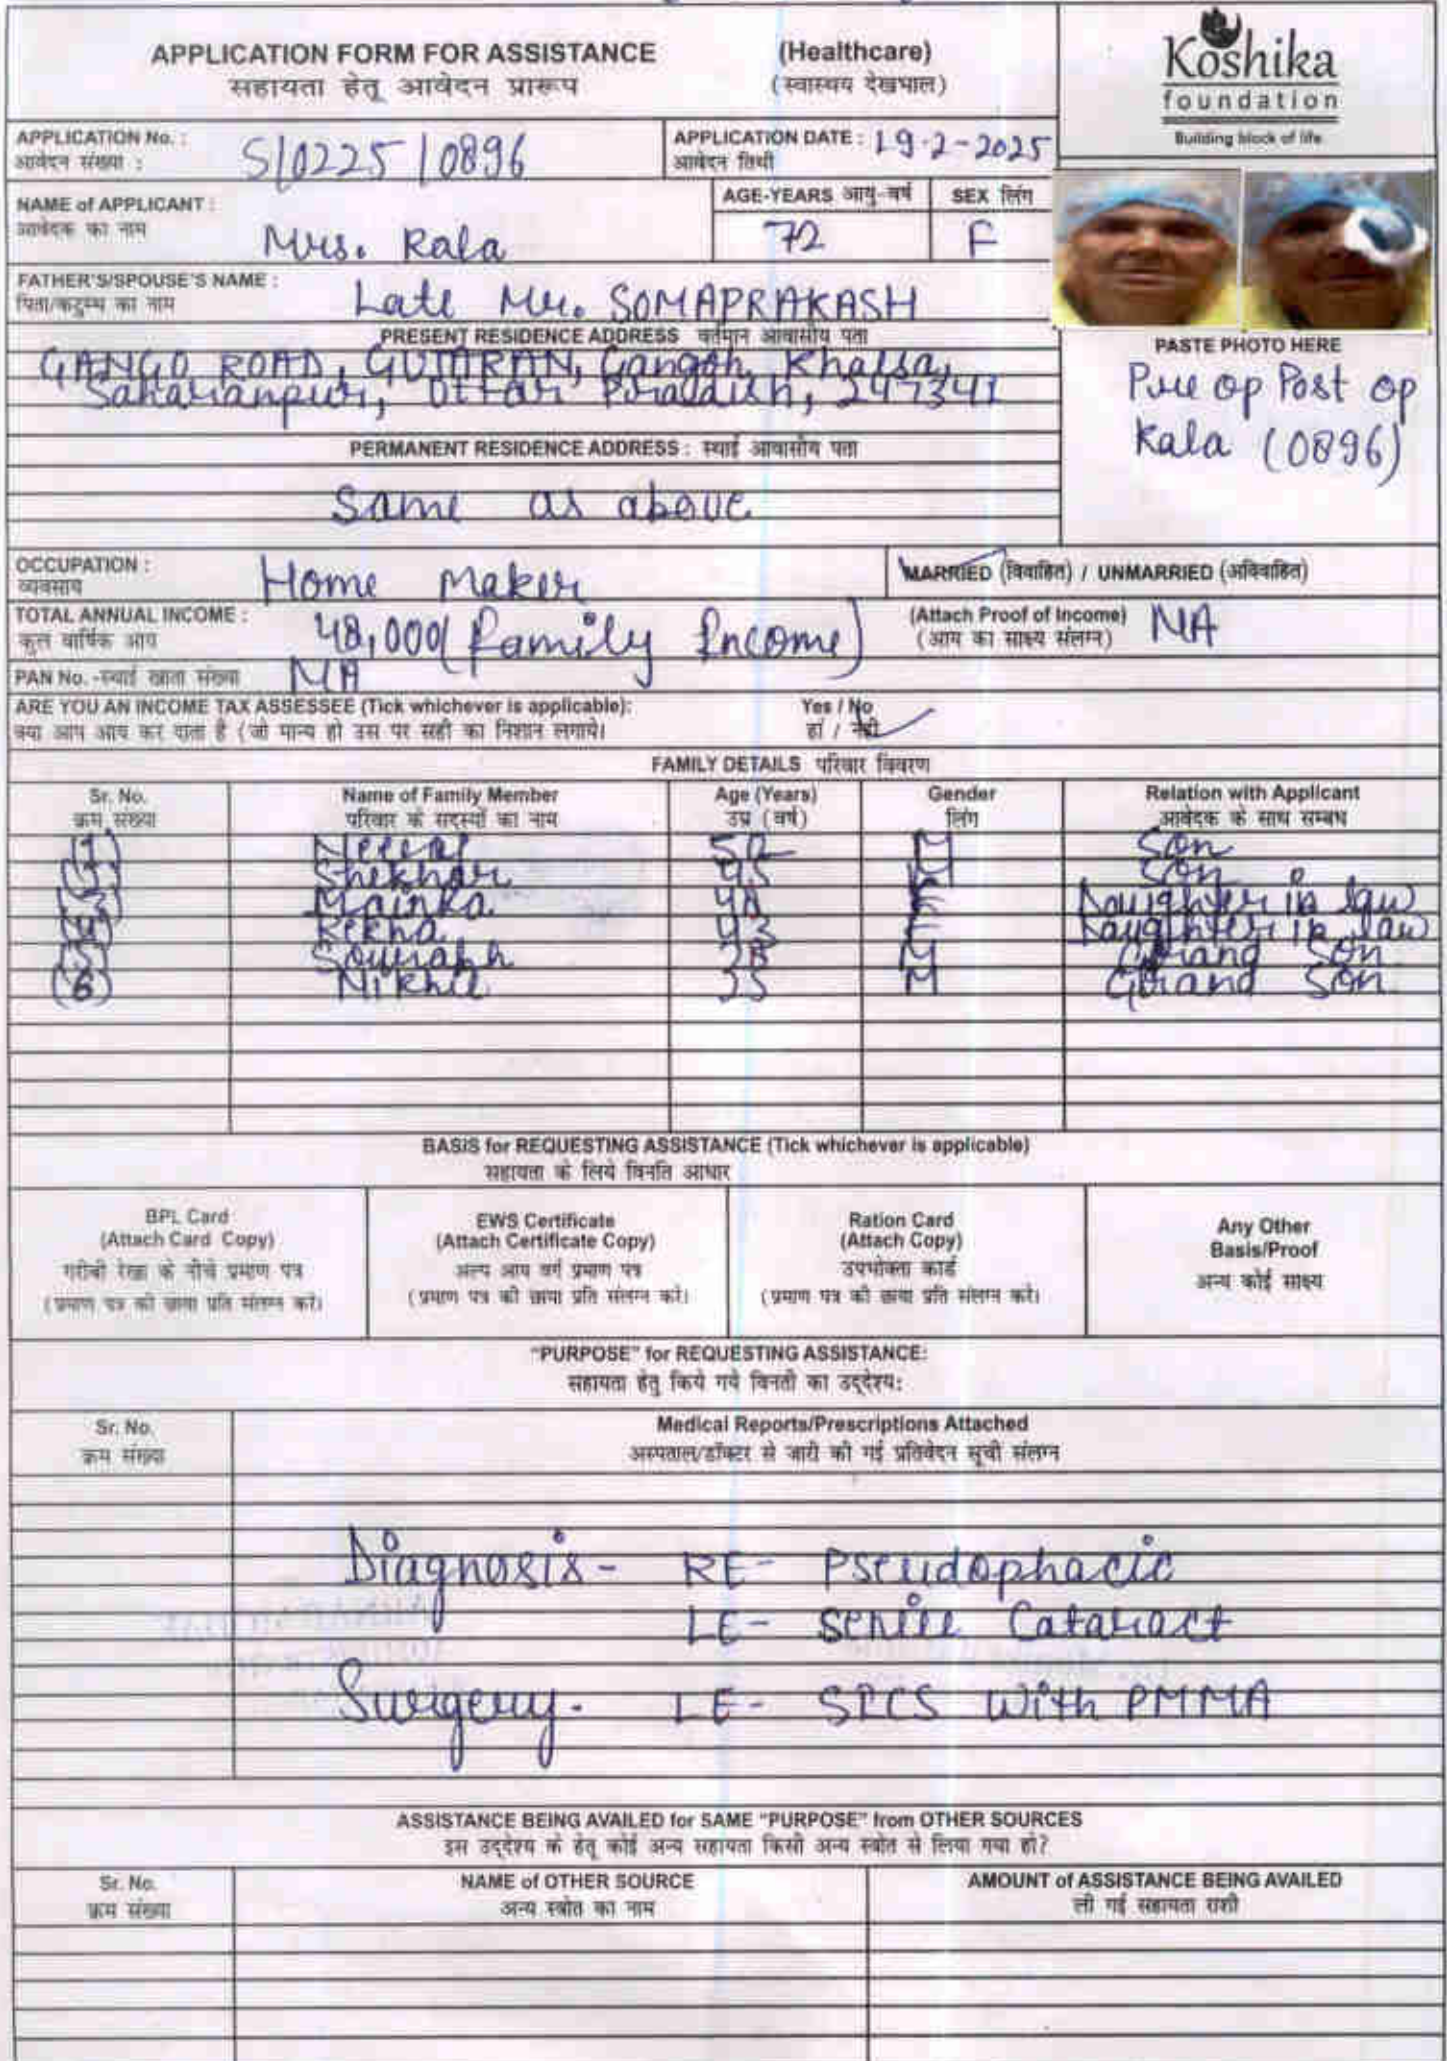 APPLICATION FORM FOR ASSISTANCE (Healthcare)
सहायता हेतू आवेदन प्रारूप (स्वास्थय देखभाल)
Koshika
foundation
Building block of life
APPLICATION No. : S/0225/0896
आवेदन संख्या :
APPLICATION DATE : 19-2-2025
आवेदन तिथी
NAME of APPLICANT : Mrs. Kala
आवेदक का नाम
AGE-YEARS आयु-वर्ष 72
SEX लिंग F
FATHER'S/SPOUSE'S NAME : Late Mr. SOMAPRAKASH
पिता/कटुम्ब का नाम
PRESENT RESIDENCE ADDRESS वर्तमान आवासीय पता
GANGO ROAD, GUJJARAN, Gangoh Khalsa,
Saharanpur, Uttar Pradaish, 247341
PASTE PHOTO HERE
Pre op Post op
Kala (0896)
PERMANENT RESIDENCE ADDRESS : स्थाई आवासीय पता
Same as above
OCCUPATION : Home Maker
व्यवसाय
MARRIED (विवाहित) / UNMARRIED (अविवाहित)
TOTAL ANNUAL INCOME : 48,000 (Family Income)
कुल वार्षिक आय
(Attach Proof of Income) NA
(आय का साक्ष्य संलग्न)
PAN No. -स्थाई खाता संख्या NA
ARE YOU AN INCOME TAX ASSESSEE (Tick whichever is applicable): Yes / No
क्या आप आय कर दाता है (जो मान्य हो उस पर सही का निशान लगाये। हां / नही
FAMILY DETAILS परिवार विवरण
Sr. No. Name of Family Member Age (Years) Gender Relation with Applicant
क्रम संख्या परिवार के सदस्यों का नाम उम्र (वर्ष) लिंग आवेदक के साथ सम्बध
(1) Neeraj 50 M Son
Shekhar 45 M Son
(3) Mainka F Daughter in law
(4) Rekha 43 F Daughter in law
(5) Sourabh 28 M Grand Son
(6) Nikhil M Grand Son
BASIS for REQUESTING ASSISTANCE (Tick whichever is applicable)
सहायता के लिये विनति आधार
BPL Card
(Attach Card Copy)
गरीबी रेखा के नीचे प्रमाण पत्र
(प्रमाण पत्र की छाया प्रति संलग्न करें।
EWS Certificate
(Attach Certificate Copy)
अल्प आय वर्ग प्रमाण पत्र
(प्रमाण पत्र की छाया प्रति संलग्न करें।
Ration Card
(Attach Copy)
उपभोक्ता कार्ड
(प्रमाण पत्र की छाया प्रति संलग्न करें।
Any Other
Basis/Proof
अन्य कोई साक्ष्य
"PURPOSE" for REQUESTING ASSISTANCE:
सहायता हेतु किये गये विनती का उद्देश्य:
Sr. No. Medical Reports/Prescriptions Attached
क्रम संख्या अस्पताल/डॉक्टर से जारी की गई प्रतिवेदन सूची संलग्न
Diagnosis - RE - Pseudophacic
LE - Senile Cataract
Surgery - LE - SICS with PMMA
ASSISTANCE BEING AVAILED for SAME "PURPOSE" from OTHER SOURCES
इस उद्देश्य के हेतू कोई अन्य सहायता किसी अन्य स्त्रोत से लिया गया हो?
Sr. No. NAME of OTHER SOURCE AMOUNT of ASSISTANCE BEING AVAILED
क्रम संख्या अन्य स्त्रोत का नाम ली गई सहायता राशी